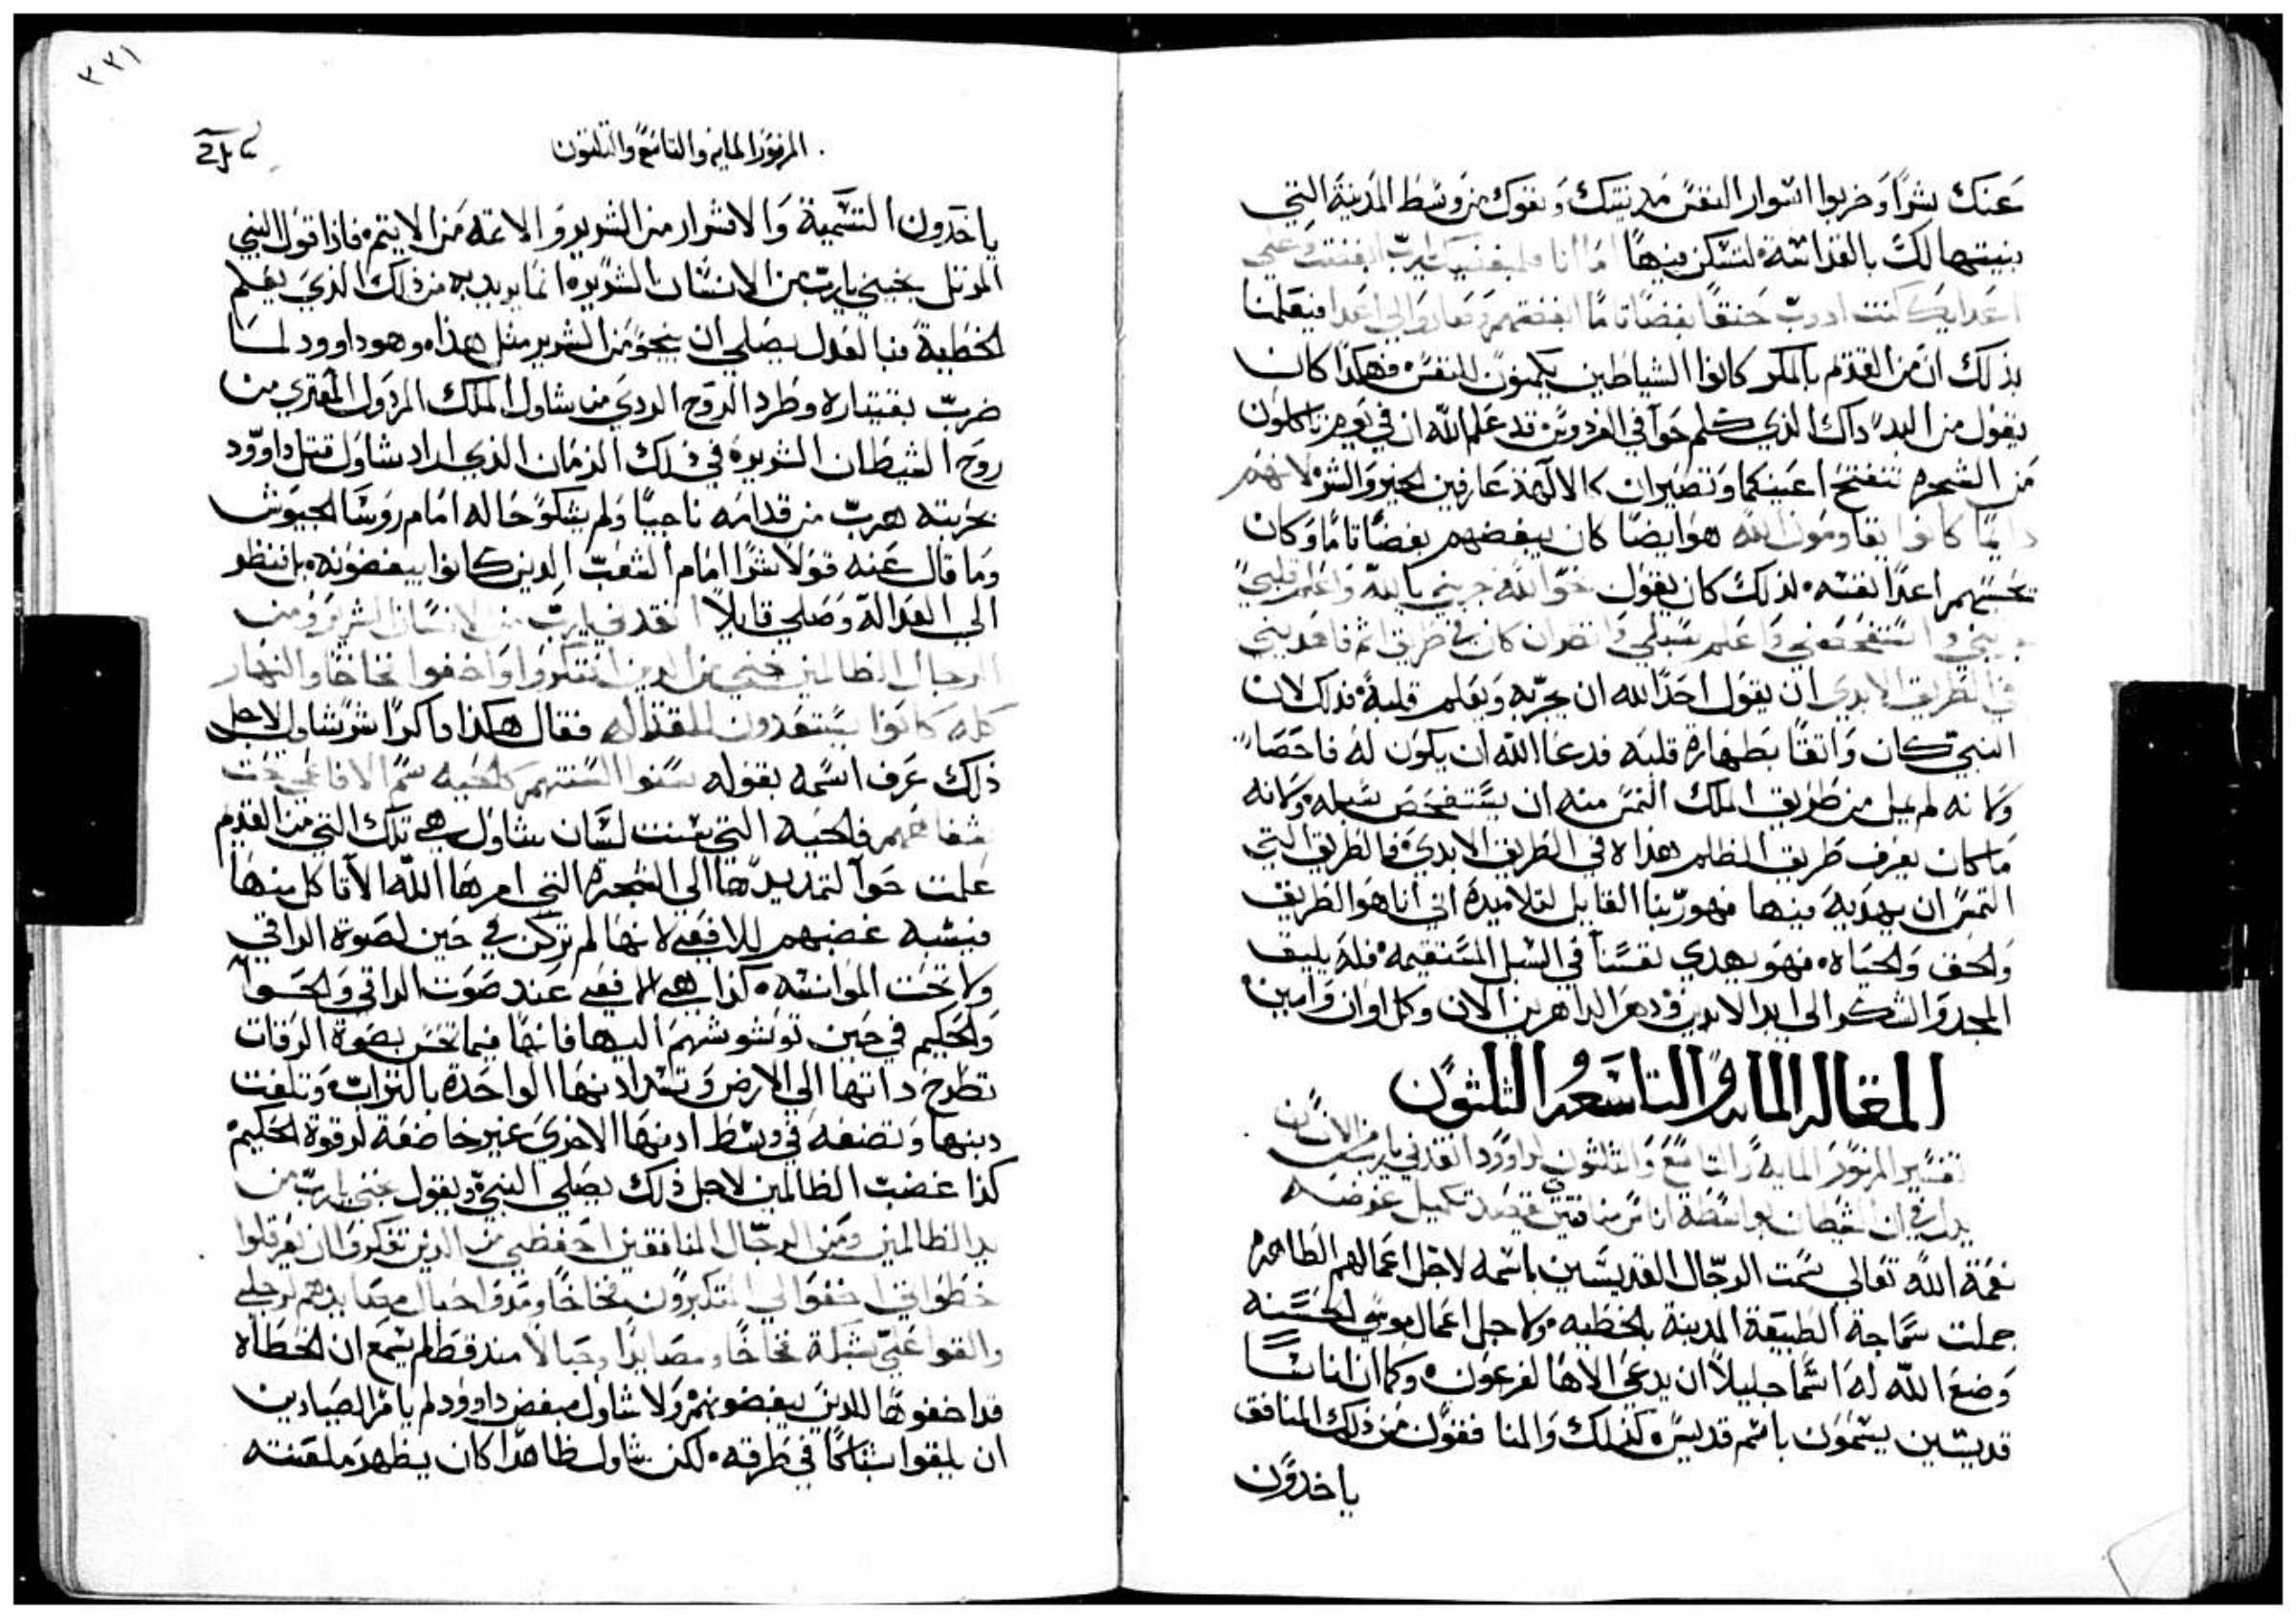 عنك بشرًا وخربوا اسوار النفس مدينتك ونفوك من وسط المدينة التي
بنيتها لك بالقداسة لتسكن فيها اما انا فلمبغضيك يارب ابغضت وعلى
اعدايك كنت ادوب حنقًا بغضًا تامًا ابغضتهم وصاروا لي اعدا فيعلمنا
بذلك ان من القدم بالمكر كانوا الشياطين يكمنون للنفس فهكذا كان
يقول من البد داك الذي كلم حوا في الفردوس قد علم الله ان في يوم تاكلون
من الشجره تنفتح اعينكما وتصيران كالالهه عارفين الخير والشر لانهم
دايمًا كانوا يقاومون الله هو ايضًا كان يبغضهم بغضًا تامًا وكان
يحسبهم اعدا نفسه لذلك كان يقول جربني يا الله واعلم قلبي
واعلم سبلي وانظر ان كان في طريق اثم فاهديني
في الطريق الابدي ان يقول احدًا لله ان يجربه ويعلم قلبه فذلك لان
النبي كان واثقًا بطهارة قلبه فدعا الله ان يكون له فاحصًا
ولانه لم يمل من طريق الملك التمس منه ان يستفحص سبله ولانه
ما كان يعرف طريق الظلم هداه في الطريق الابدي فالطريق التي
التمس ان يهديه فيها فهو ربنا القايل لتلاميده اني انا هو الطريق
والحق والحياه فهو يهدي نفسنا في السبل المستقيمه فله يليق
المجد والشكر الى ابد الابدين ودهر الداهرين الان وكل اوان وامين
المقاله المايه والتاسعه والثلثون
تفسير المزمور المايه والتاسع والثلثون لداوود انقدني يارب من الانسان
يدل في ان الشيطان بواسطة اناس منافقين يقصد تكميل غرضه
نعمة الله تعالى سمت الرجال القديسين باسمه لاجل اعمالهم الطاهره
جملت سماجة الطبيعة المدينة بالخطيه ولاجل اعمال موسى الحسنه
وضع الله له اسمًا جليلًا ان يدعى الاهًا لفرعون وكما ان اناسًا
قديسين يسمون باسم قديس كذلك والمنافقون من ذلك المنافق
ياخدون
٣٣١
المزمور المايه والتاسع والثلثون
ياخدون التسمية والاشرار من الشرير والاثمه من الاثيم فاذا قول النبي
المرتل نجيني يارب من الانسان الشرير انما يريد به من ذلك الذي يعلم
الخطية فبالعدل يصلي ان ينجو من الشرير مثل هذا وهو داوود لما
ضرب بقيتاره وطرد الروح الردي من شاول الملك المردول المعترى من
روح الشيطان الشريره في ذلك الزمان الذي اراد شاول قتل داوود
بحربته هرب من قدامه ناجيًا ولم يشكو حاله امام روسا الجيوش
وما قال عنه قولًا شرًا امام الشعب الدين كانوا يبغضونه بل فنظر
الى العدالة وصلى قايلًا انقدني يارب من الانسان الشرير ومن
الرجال الظالمين نجني من الدين افتكروا واخفوا فخاخًا والنهار
كله كانوا يستعدون للقتال فقال هكذا داكرًا شر شاول لاجل
ذلك عرف اسمه بقوله سنوا السنتهم كالحيه سم الافاعي تحت
شفاههم فالحيه التي سنت لسان شاول هي تلك التي من القدم
علمت حوا لتمد يدها الى الشجره التي امرها الله الا تاكل منها
فيشبه غضبهم للافعى لانها لم تركن في حين لصوة الراقي
ولا تحت الموانسه كذا هي الافعى عند صوت الراقي والحوا
والحكيم في حين توشوشهم اليها فانها فيما تحس بصوة الرقات
تطرح داتها الى الارض وتسد ادنها الواحدة بالتراب وتلفت
دنبها وتضعه في وسط ادنها الاخرى غير خاضعة لرقوة الحكيم
كذا غضب الظالمين لاجل ذلك يصلي النبي ويقول نجني يارب من
يد الظالمين ومن الرجال المنافقين احفظني من الدين تفكروا ان يعرقلوا
خطواتي اخفوا لي المتكبرون فخاخًا ومدوا حبال مصايدهم لرجلي
والقوا علي شبكة فخاخًا ومصايدًا وحبالًا مند قط لم يسمع ان الخطاه
قد اخفوها للدين يبغضونهم ولا شاول مبغض داوود لم يامر الصيادين
ان يلقوا شباكًا في طرقه لكن شاول ظاهرًا كان يظهر ملعنته